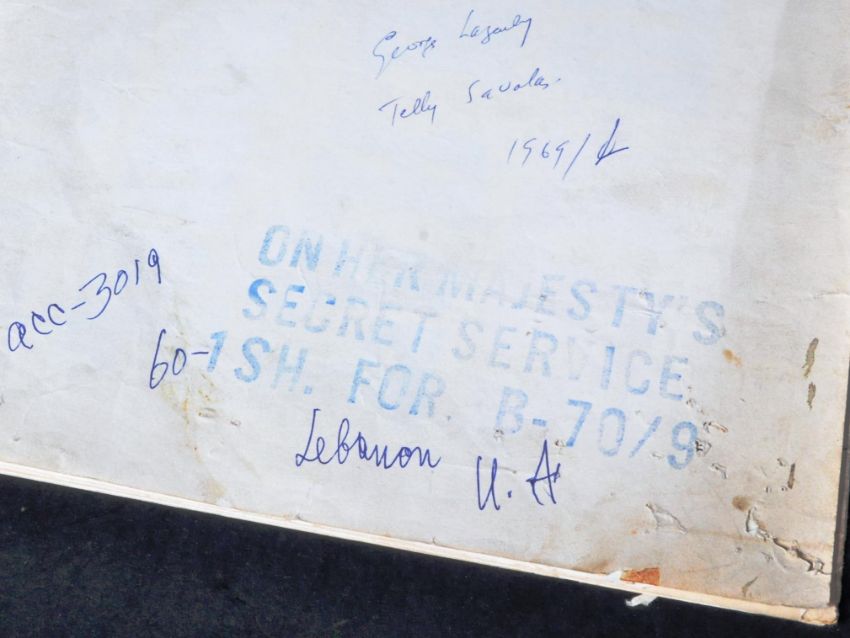 George Lazenby
Telly Savalas.
1969/
acc-3019
ON HER MAJESTY'S
SECRET SERVICE
60-1 SH. FOR. B-70/9
Lebanon U.A